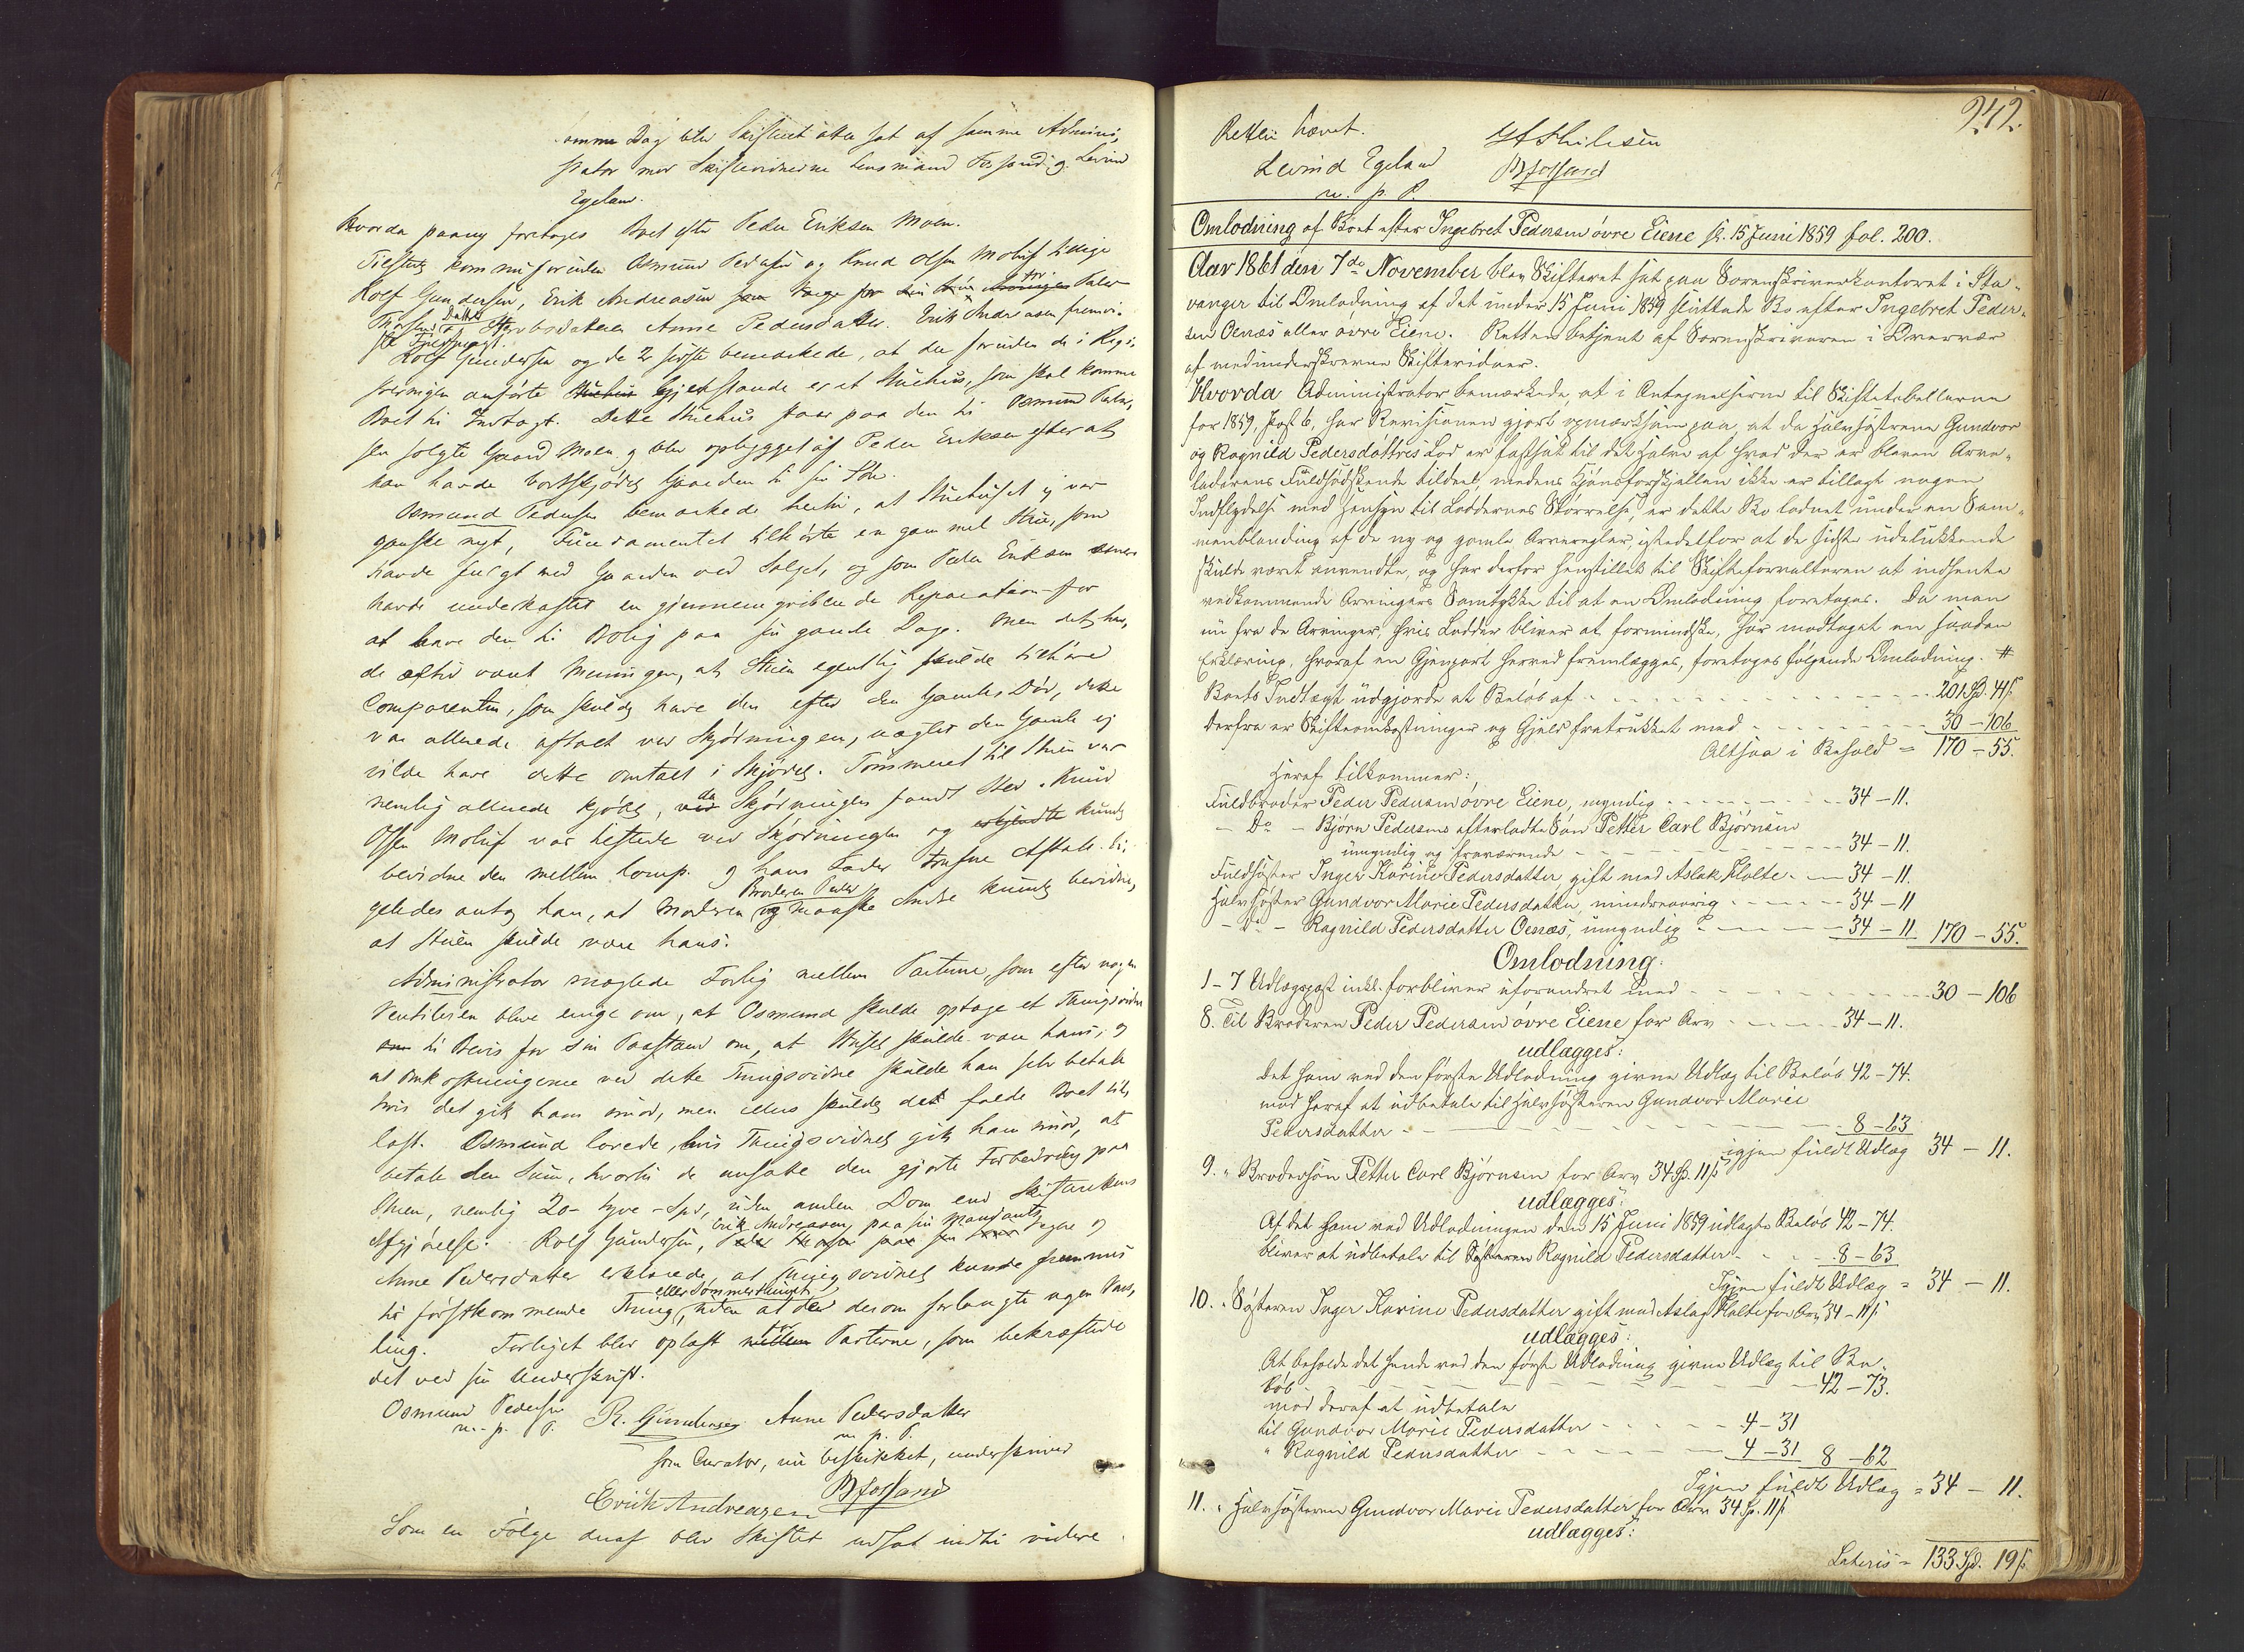 Samme Dag blev Skifteret atter sat af samme Admini,
strator med Skiftevidnerne Lensmand Fossand og Levind
Egeland.
Hvorda paany foretages Boet efter Peder Eriksen Moen.
Tilstede kom nu foruden Osmund Pedersen og Knud Olsen Moluf tillige
Rolf Gundersen, Erik Andreasen som Værge for sin for Peder
Thorsens Datter og Stervbodatteren Anne Pedersdatter. Erik Andreasen fremvi,
ste Fuldmagt.
Rolf Gundersen og de 2 sidste bemærkede, at der foruden de i Regi,
streringen anførte Stuehus Gjenstande er et Stuehus, som skal komme
Boet til Indtægt. Dette Stuehus staar paa den til Osmund Peder,
sen solgte Gaard Moen og blev opbygget af Peder Eriksen efter at
han havde bortskjødet Gaarden til sin Søn.
Osmund Pedersen bemærkede hertil, at Stuehuset ej var
ganske nyt, Fundamentet tilhørte en gammel Stue, som
havde fulgt med Gaarden ved Salget, og som Peder Eriksen
havde underkastet en gjennemgribende Reparation for
at have den til Bolig paa sin gamle Dage. Men det hav,
de altid været Meningen, at Stuen egentlig skulde tilhøre
Comparenten, som skulde have den efter den Gamles Død, dette
var allerede aftalt ved Skjødningen, uagtet den Gamle ej
vilde have dette omtalt i Skjødet. Tømmeret til Stuen var
nemlig allerede kjøbt, ved da Skjødningen fandt Sted. Knud
Olsen Moluf var tilstede ved Skjødningen og erkjendte kunde
bevidne den mellem Comp. og hans Fader trufne Aftale. Li,
geledes antog han, at Moderen og Broderen Peder maaske Andre kunde bevidne,
at Stuen skulde være hans.
Administrator mæglede Forlig mellem Parterne, som efter nogen
Ventileren bleve enige om, at Osmund skulde optage et Thingsvidne
om til Bevis for sin Paastand om, at Huset skulde være hans, og
at Omkostningerne ved dette Thingsvidne skulde han selv betale
hvis det gik ham imod, men ellers skulde det falde Boet til
last. Osmund lovede, hvis Thingsvidnet gik ham imod, at
betale den Sum, hvortil de ansatte den gjorte Forbedring paa
Stuen, nemlig 20 – tyve – Spd, uden anden Dom end Skifterettens
Afgjørelse. Rolf Gundersen, Erik Andreasen paa sin Mandants Vegne og
Anne Pedersdatter erklærede, at Thingsvidnet kunde fremmes
til førstkommende Thing eller Sommerthinget, uden at der desom forlangte nogen Vars,
ling. Forliget blev oplæst for Parterne, som bekræftede
det ved sin Underskrift.
Osmund Pedersen R. Gundersen Anne Pedersdatter
m. p. P. m. p. P.
som Curator, nu beskikket, underskriver
Erick Andreazen BFossand
Som en Følge deraf blev Skiftet udsat indtil videre

242.
Retten hævet.
Levind Egeland BFossand
m. p. P.
Omlodning af Boet efter Ingebret Pedersen øvre Eiene sl. 15 Juni 1859 fol. 200.
Aar 1861 den 7de November blev Skifteret sat paa Sorenskriverkontoret i Sta,
vanger til Omlodning af det under 15 Juni 1859 sluttede Bo efter Ingebret Peder,
sen Oenæs eller øvre Eiene. Retten betjent af Sorenskriveren i Overvær
af medunderskrevne Skiftevidner.
Hvorda Administrator bemærkede, at i Antegnelserne til Skiftetabellerne
for 1859, Post 6, har Revisionen gjort opmærksom paa, at da Halvsøstrene Gundvor
og Ragnild Pedersdøttres Lod er fastsat til det halve af hvad der er bleven Arve,
laderens Fuldsødskende tildeelt, medens Kjønsforskjellen ikke er tillagt nogen
Indflydelse med Hensyn til Loddernes Størrelse, er dette Bo lodnet under en Sam,
menblanding af de ny og gamle Arveregler, istedetfor at de sidste udelukkende
skulde været anvendte, og har derfor henstillet til Skifteforvalteren at indhente
vedkommende Arvingers Samtykke til at en Omlodning foretages. Da man
nu fra de Arvinger, hvis Lodder bliver at formindske, har modtaget en saadan
Erklæring, hvoraf en Gjenpart herved fremlægges, foretages følgende Omlodning. #
Boets Indtægt udgjorde et Beløb af - - - 201 Spd. 41 s
Derfra er Skifteomkostninger og Gjæld fratrukket med - - - 30 – 106
Altsaa i Behold = 170 – 55.
Heraf tilkommer:
Fuldbroder Peder Pedersen øvre Eiene, myndig - - - 34 – 11.
– Do – Bjørn Pedersens efterladte Søn Petter Carl Bjørnsen
umyndig og fraværende - - - 34 – 11.
Fuldsøster Inger Karine Pedersdatter gift med Aslak Holte - - 34 – 11.
Halvsøster Gundvor Marie Pedersdatter, mindreaarig - - - 34 – 11
– Do – Ragnild Pedersdatter Oenæs, umyndig - - - 34 – 11 170 – 55.
Omlodning.
1 – 7 Udlægspost inkl. forbliver uforandret med - - - 30 – 106
8. Til Broderen Peder Pedersen øvre Eiene for Arv - - - 34 – 11.
udlægges:
Det ham ved den første Udlodning givne Udlæg til Beløb 42 – 74.
mod heraf at udbetale til Halvsøsteren Gundvor Marie
Pedersdatter - - - 8 – 63
igjen fuldt Udlæg 34 – 11.
9. " Brodersøn Petter Carl Bjørnsen for Arv 34 Sp. 11 s
udlægges:
Af det ham ved Udlodningen den 15 Juni 1859 udlagte Beløb 42 – 74.
bliver at udbetale til Søsteren Ragnild Pedersdatter - - - 8 – 63
Igjen fuldt Udlæg = 34 – 11.
10. " Søsteren Inger Karine Pedersdatter gift med Aslag Holte for Arv 34 – 11 s
udlægges:
At beholde det hende ved den første Udlodning givne Udlæg til Be,
løb - - - 42 – 73.
mod deraf at udbetale
til Gundvor Marie Pedersdatter - - - 4 – 31
" Ragnild Pedersdatter - - - 4 – 31 8 – 62
Igjen fuldt Udlæg = 34 – 11.
11. " Halvsøsteren Gundvor Marie Pedersdatter for Arv 34 Sp. 11 s
udlægges:
Lateris = 133 Spd. 19 s